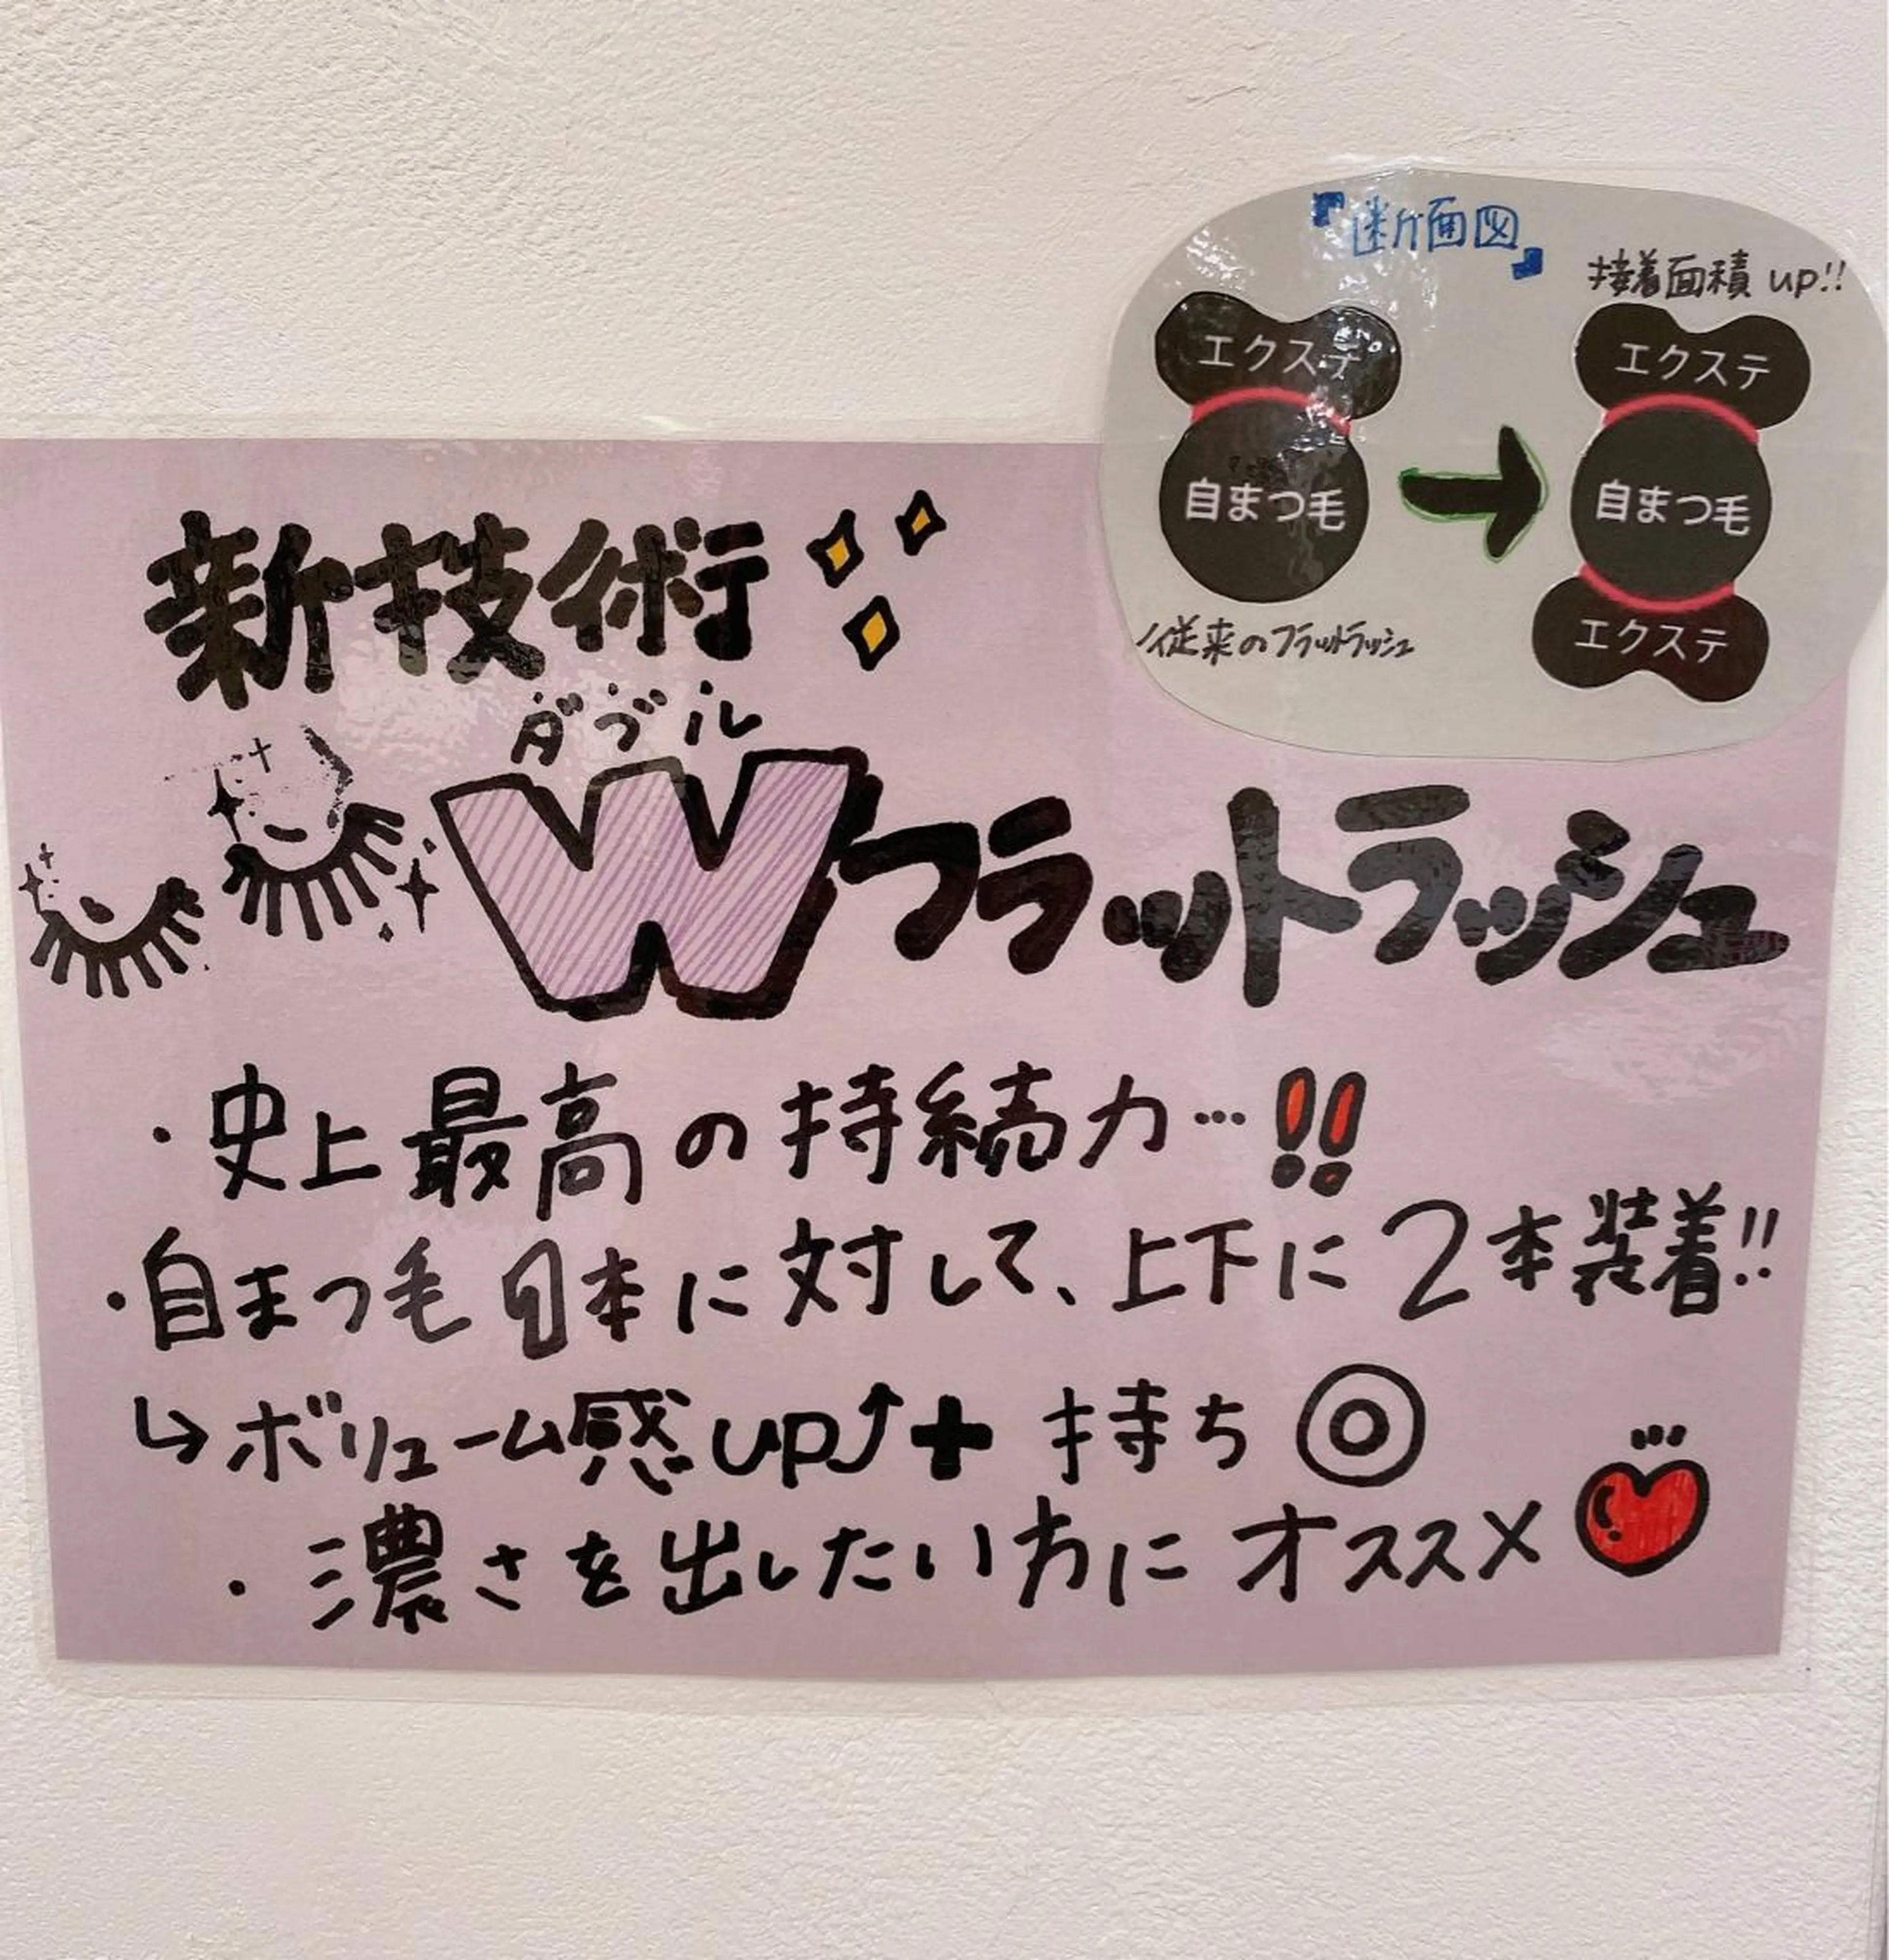 『断面図』
接着面積 up!!
エクステ
エクステ
自まつ毛
自まつ毛
従来のフラットラッシュ
エクステ
新技術
ダブル
Wフラットラッシュ
・史上最高の持続力…!!
・自まつ毛1本に対して、上下に2本装着!!
↳ボリューム感up⤴+持ち◎
・濃さを出したい方にオススメ